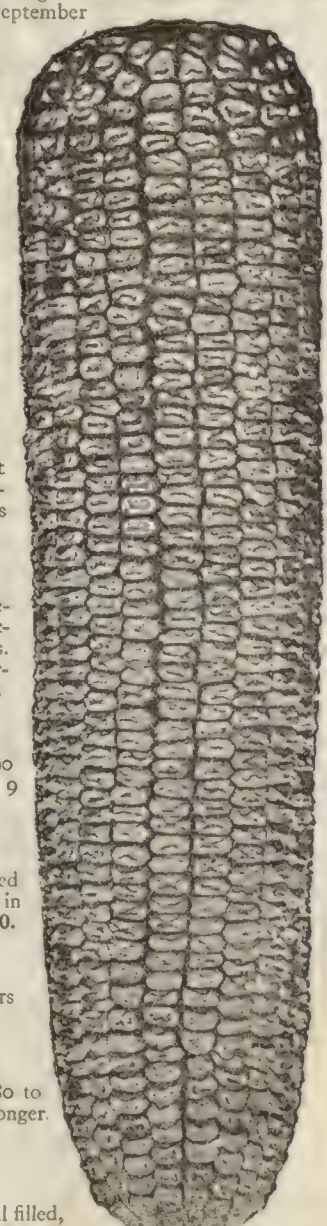 eptember
t
-
s
e-
e-
s.
r-
no
9
ed
in
0.
rs
80 to
onger.
l filled,